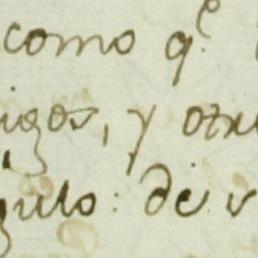 como q.e
igos, y otr
gulo: de v